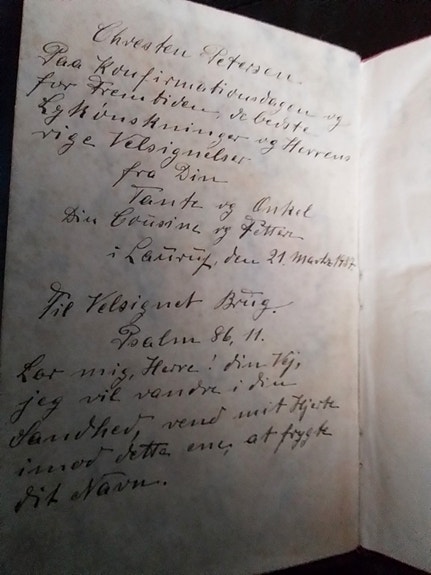 Chresten Petersen
Paa Konfirmationsdagen og
for Fremtiden, de bedste
Lykønskninger og Herrens
rige Velsignelser
fra Din
Tante og Onkel
Din Cousine og Fetter
i den 21 Marts
Til Velsignet Brug.
Psalm 86, 11.
Lær mig, Herre! din Vej,
jeg vil vandre i din
Sandhed, vend mit Hjerte
imod dette ene, at frygte
dit Navn.